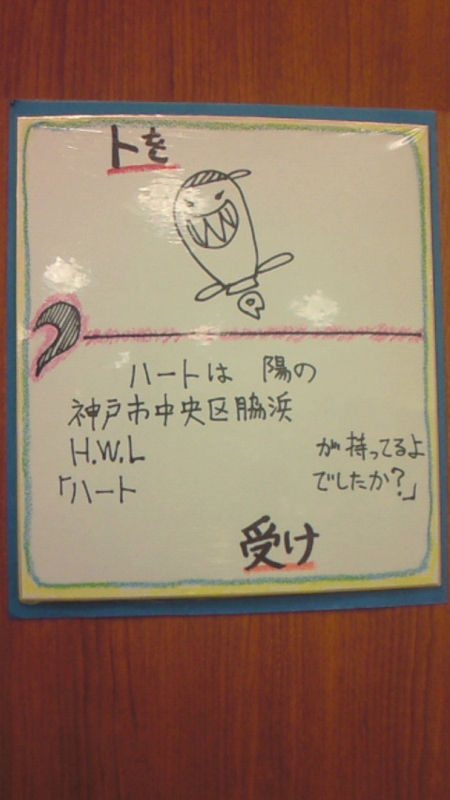 トを
ハートは 陽の
神戸市中央区脇浜
H.W.L が持ってるよ
「ハート でしたか?」
受け